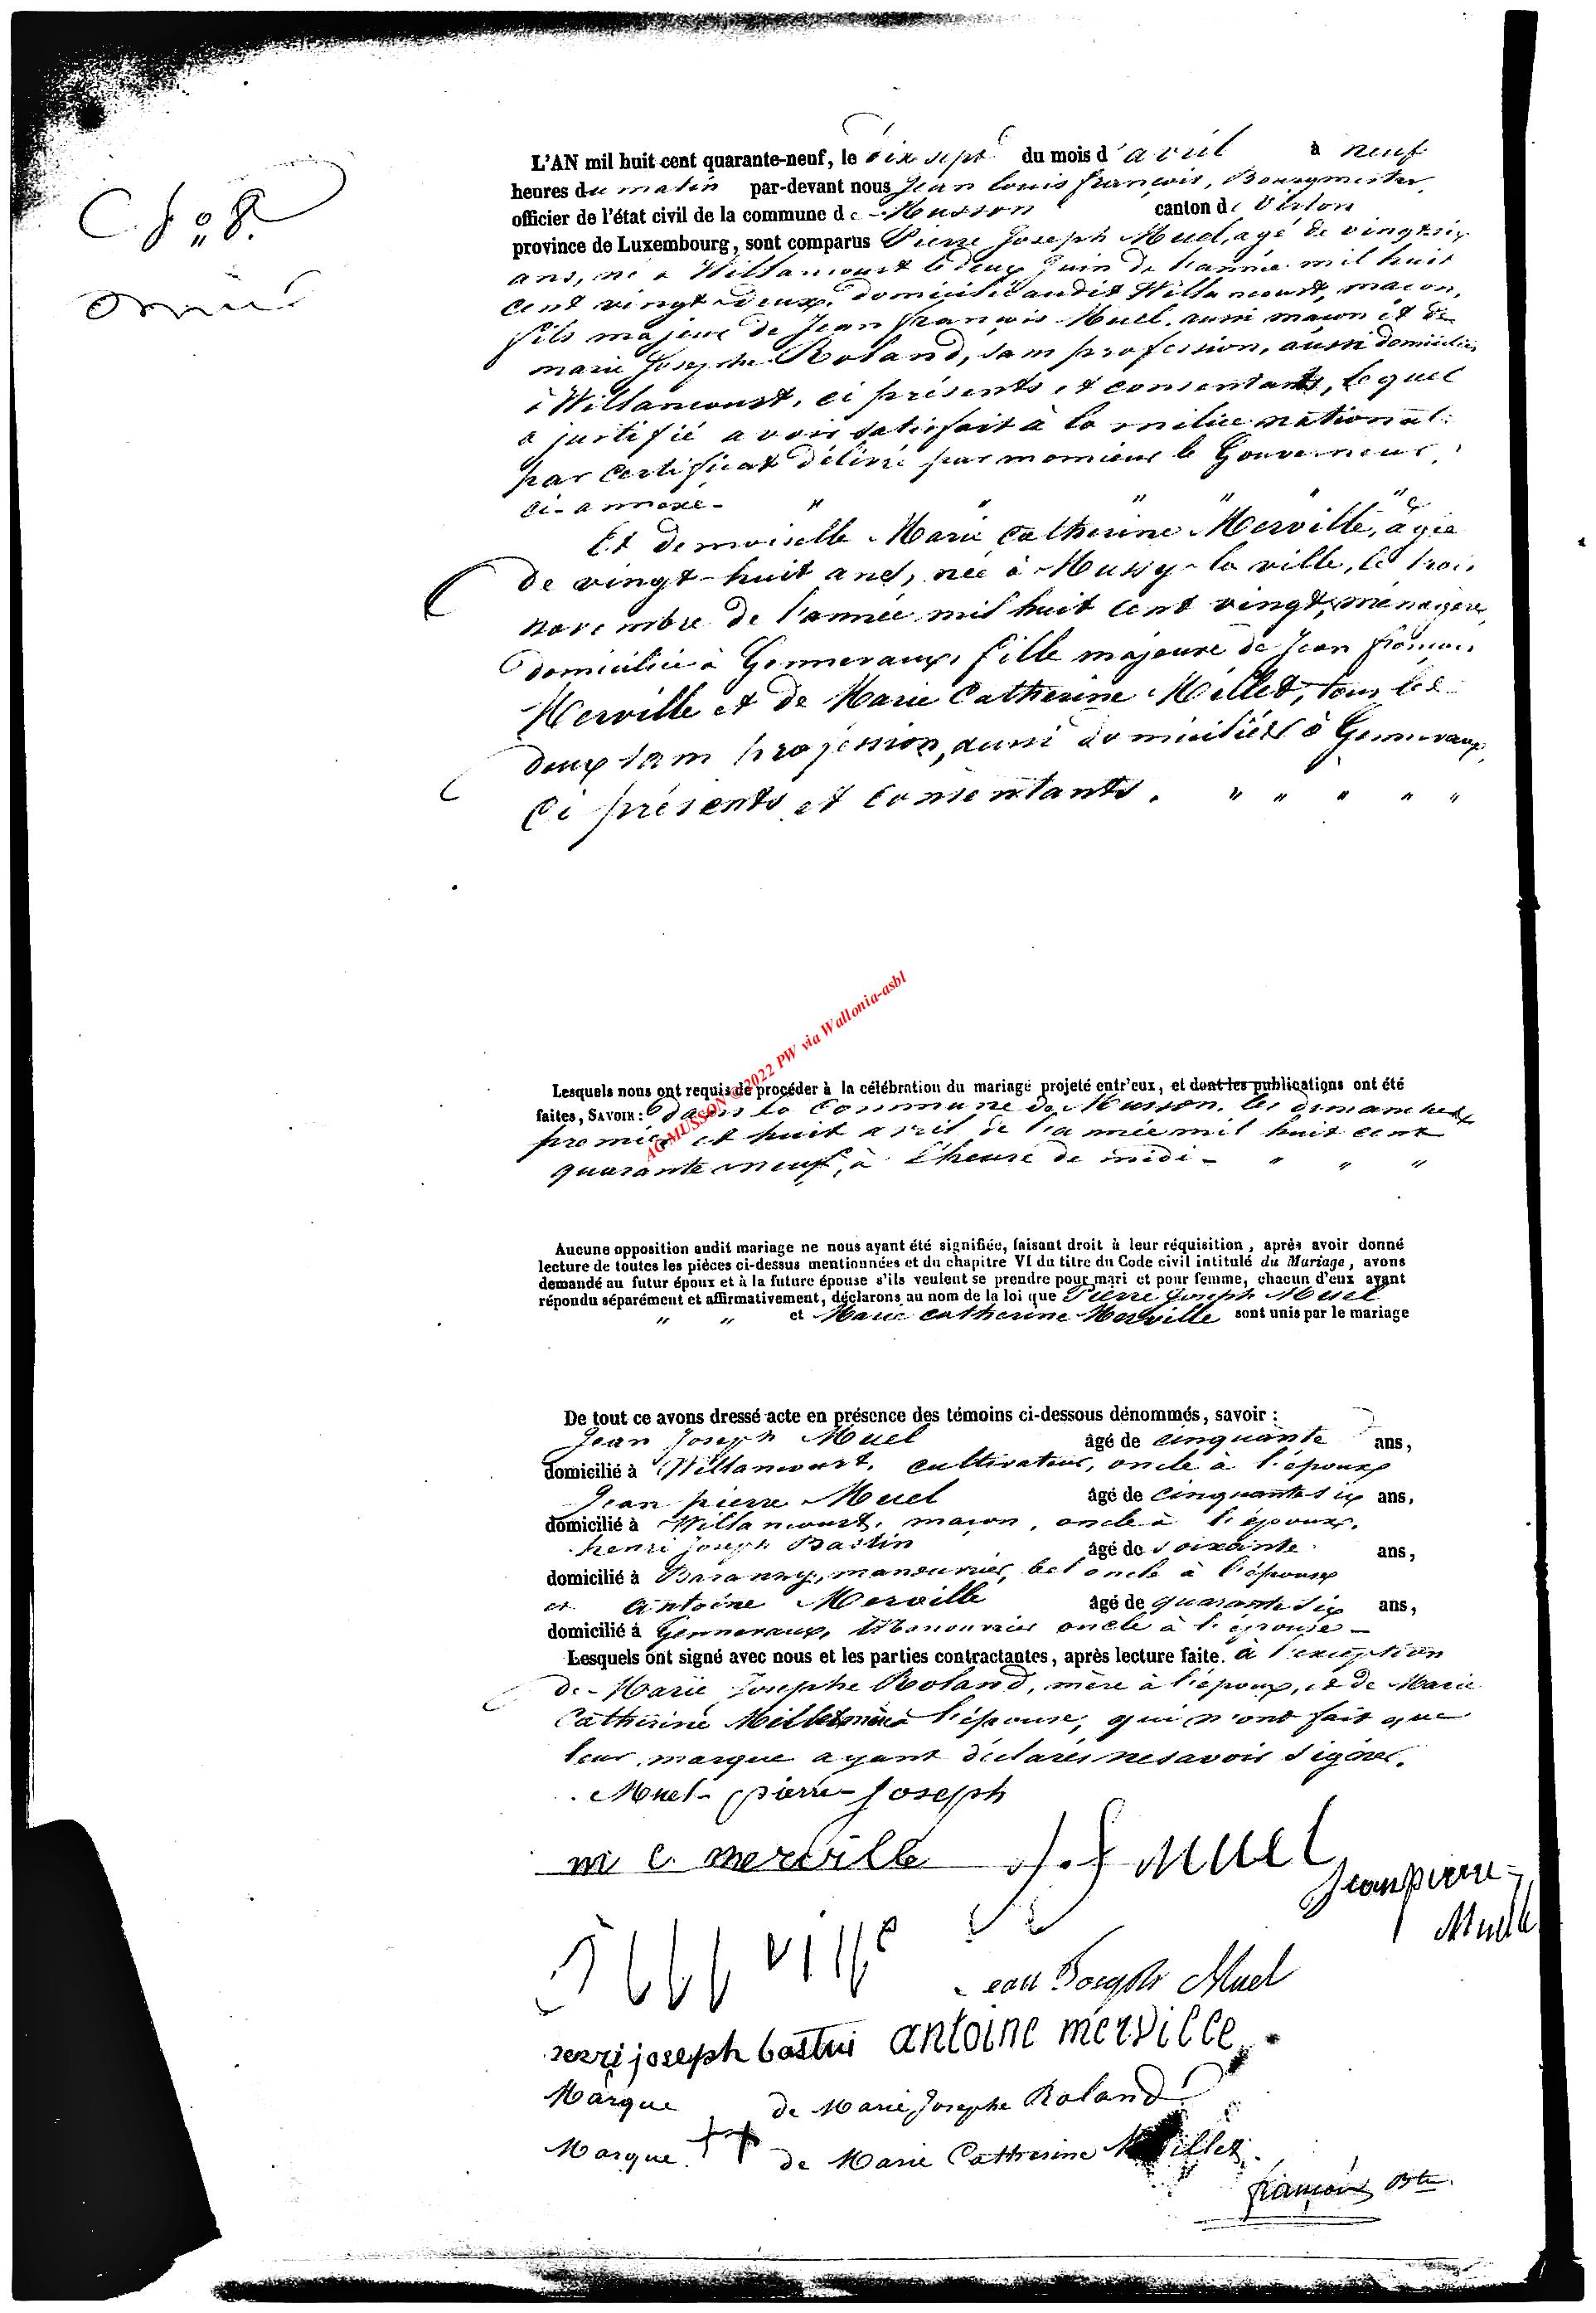 N.º 8.
L'AN mil huit cent quarante-neuf, le dix sept du mois d'avril à neuf
heures du matin par-devant nous Jean louis françois, Bourgmestre,
officier de l'état civil de la commune de Musson canton de Virton
province de Luxembourg, sont comparus Pierre Joseph Muel, agé de vingt six
ans, né à Willancourt le deux Juin de l'année mil huit
cent vingt-deux, domicilié audit Willancourt, maçon,
fils majeur de Jean françois Muel, aussi maçon et de
marie Josephe Roland, sans profession, aussi domiciliés
à Willancourt, ci présents et consentants, lequel
a justifié avoir satisfait à la milice nationale
par certificat délivré par monsieur le Gouverneur,
ci-annexé- " " " " " "
Et demoiselle Marie Catherine Merville, âgée
de vingt-huit ans, née à Mussy-la ville, le trois
novembre de l'année mil huit cent vingt, ménagère,
domiciliée à Gennevaux, fille majeure de Jean françois
Merville et de Marie Catherine Millet, tous les
deux sans profession, aussi domiciliés à Gennevaux,
ci présents et consentants. " " " " "
Lesquels nous ont requis de procéder à la célébration du mariage projeté entr'eux, et dont les publications ont été
faites, SAVOIR : dans la commune de Musson, les dimanches
premier et huit avril de l'année mil huit cent
quarante neuf, à l'heure de midi - " " "
AG MUSSON ©2022 PW via Wallonia-asbl
Aucune opposition audit mariage ne nous ayant été signifiée, faisant droit à leur réquisition, après avoir donné
lecture de toutes les pièces ci-dessus mentionnées et du chapitre VI du titre du Code civil intitulé du Mariage, avons
demandé au futur époux et à la future épouse s'ils veulent se prendre pour mari et pour femme, chacun d'eux ayant
répondu séparément et affirmativement, déclarons au nom de la loi que Pierre Joseph Muel
" " et Marie Catherine Merville sont unis par le mariage
De tout ce avons dressé acte en présence des témoins ci-dessous dénommés, savoir :
Jean Joseph Muel âgé de cinquante ans,
domicilié à Willancourt, cultivateur, oncle à l'époux
Jean pierre Muel âgé de cinquante six ans,
domicilié à Willancourt, maçon, oncle à l'époux.
henri Joseph Bastin âgé de soixante ans,
domicilié à Baranzy, manouvrier, bel oncle à l'époux
et Antoine Merville âgé de quarante six ans,
domicilié à Gennevaux, Manouvrier oncle à l'épouse -
Lesquels ont signé avec nous et les parties contractantes, après lecture faite. à l'exception
de Marie Josephe Roland, mère à l'époux, et de Marie
Catherine Millet mère à l'épouse, qui n'ont fait que
leur marque ayant déclarés ne savoir signer.
Muel pierre Joseph
m c merville J.f Muel
Jean pierre
Muel
ville
ean Joseph Muel
henri joseph bastin antoine merville.
Marque de Marie Josephe Roland
Marque de Marie Catherine Millet.
françois Btre.